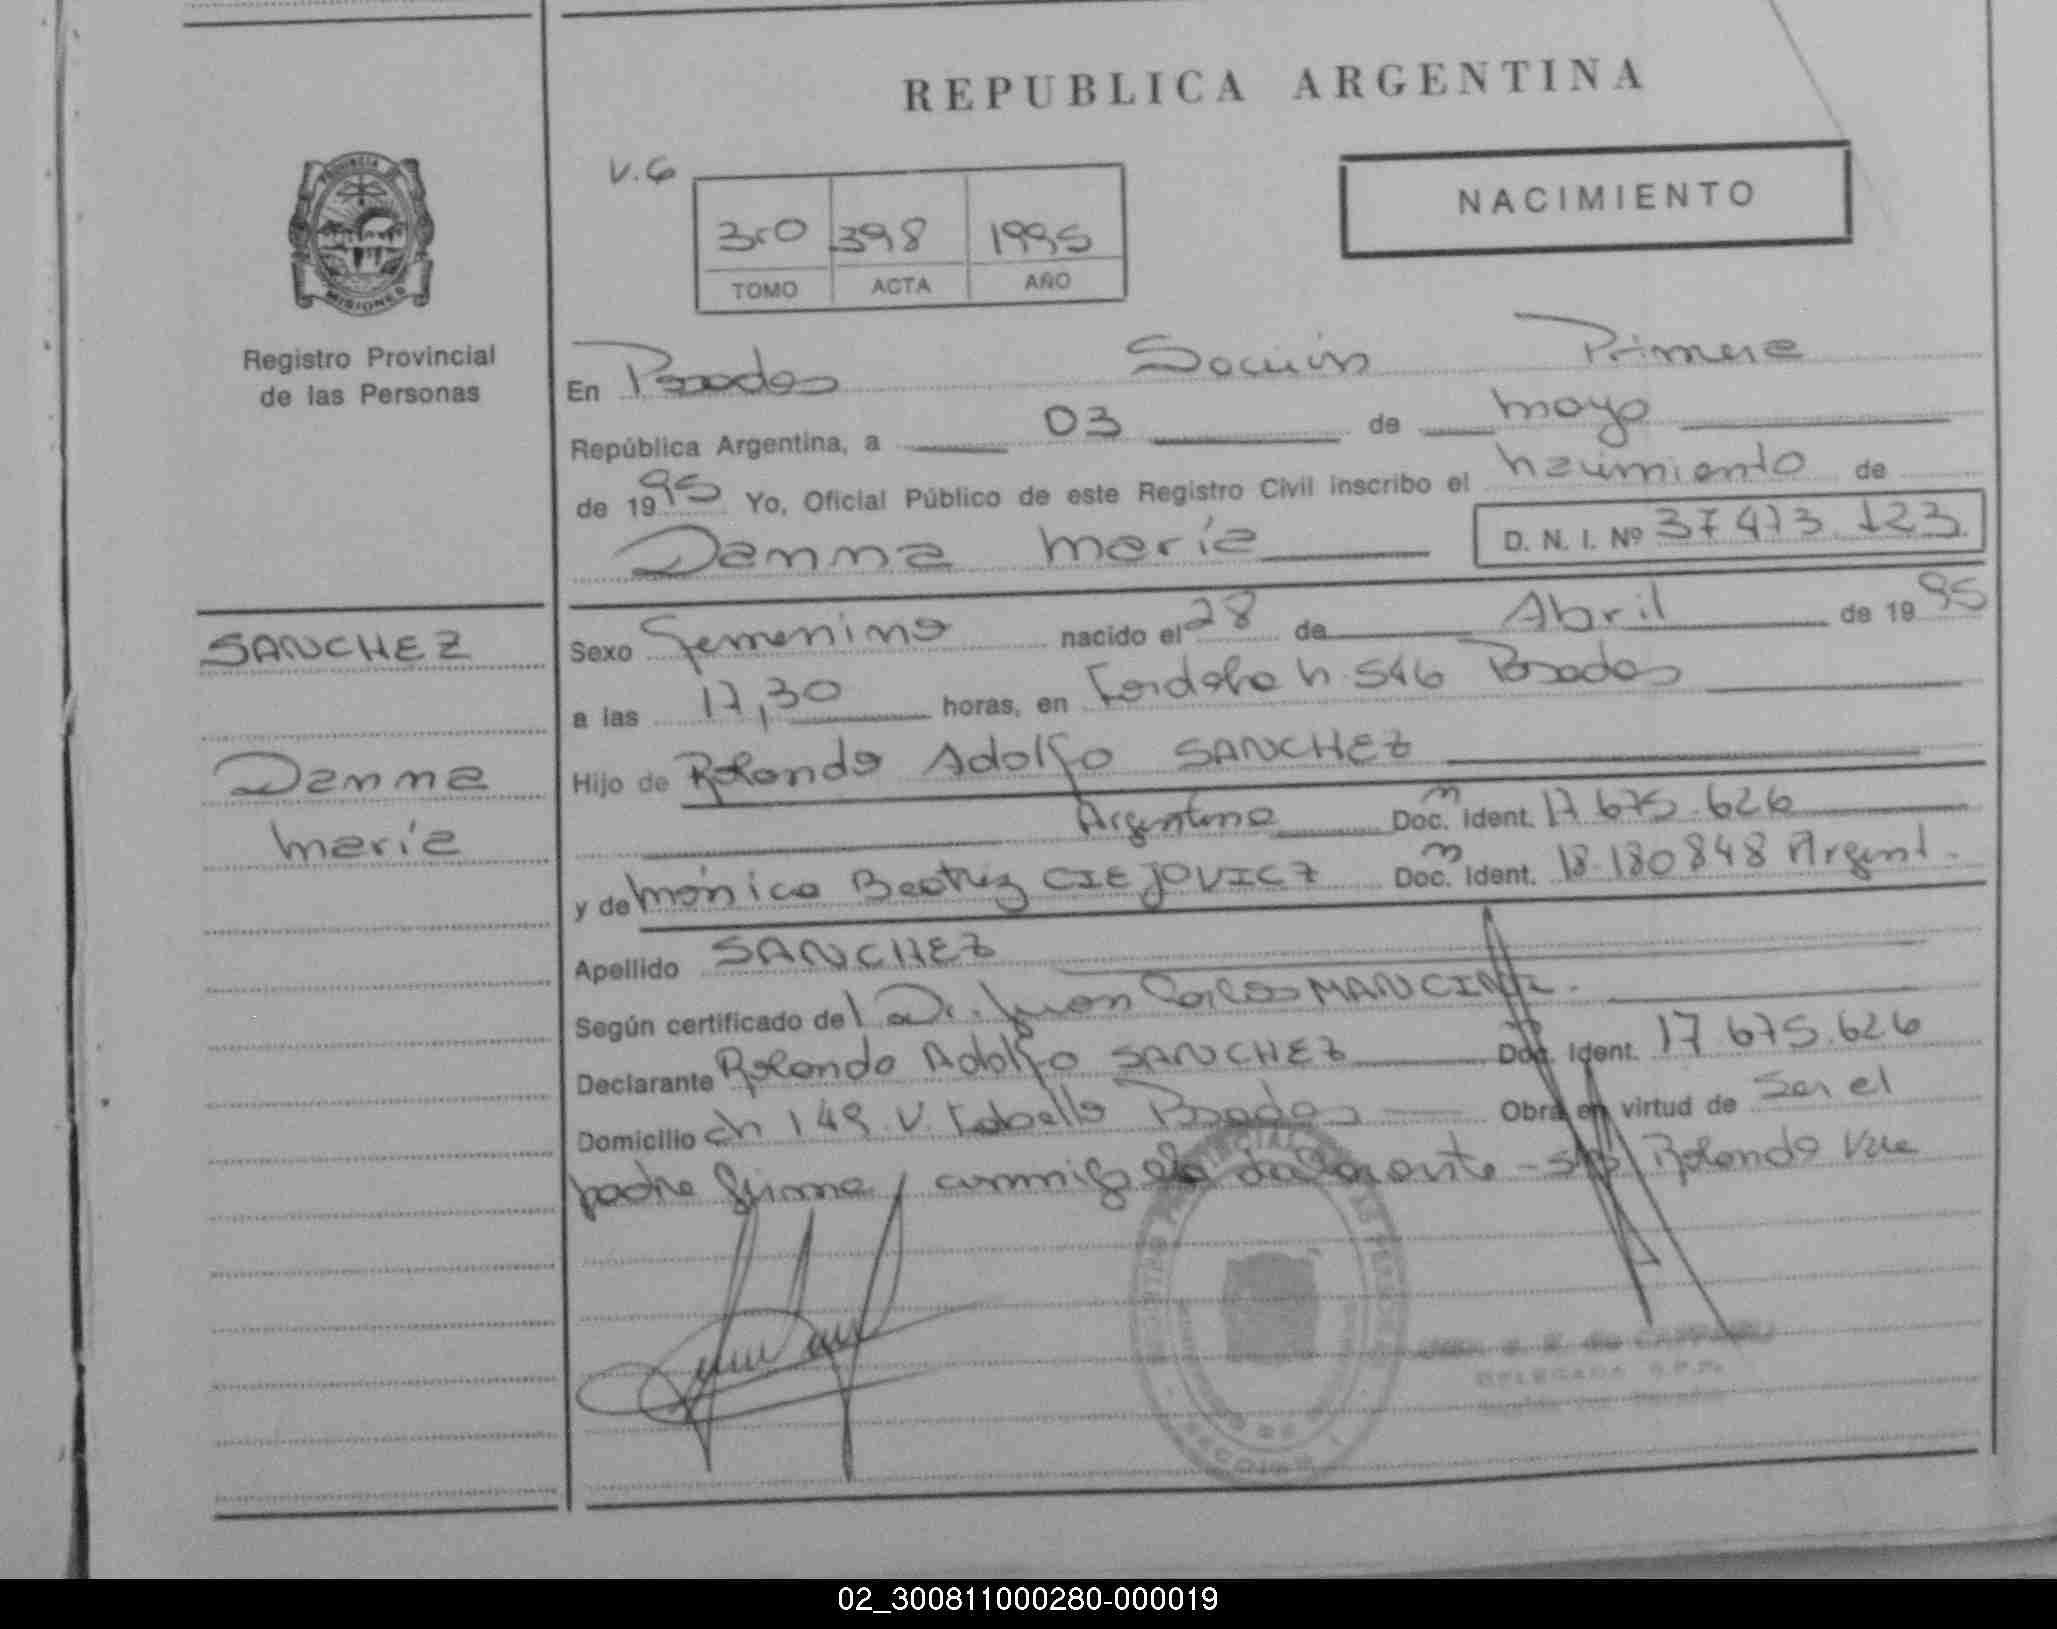 REPUBLICA ARGENTINA
V.6
NACIMIENTO
3ro 398 1995
TOMO ACTA AÑO
PROVINCIA DE
MISIONES
Registro Provincial
de las Personas
En Posadas Sección Primera
República Argentina, a 03 de mayo
de 1995 Yo, Oficial Público de este Registro Civil inscribo el nacimiento de
Danna María D. N. I. Nº 37 473.123
SANCHEZ
Danna
María
Sexo Femenino nacido el 28 de Abril de 1995
a las 17,30 horas, en Cordoba n. 546 Posadas
Hijo de Rolando Adolfo SANCHEZ
Argentino Doc. Ident. 17 675.626
y de Mónica Beatriz CIEJOVICZ Doc. Ident. 18.180848 Argent.
Apellido SANCHEZ
Según certificado del Dr. Juan Carlos MANCINI.
Declarante Rolando Adolfo SANCHEZ Doc. Ident. 17 675.626
Domicilio ch 149 V. Cabello Posadas Obra en virtud de ser el
padre firma conmigo el declarante - s/r Rolando Vale
DELEGADA R.P.P.
02_300811000280-000019